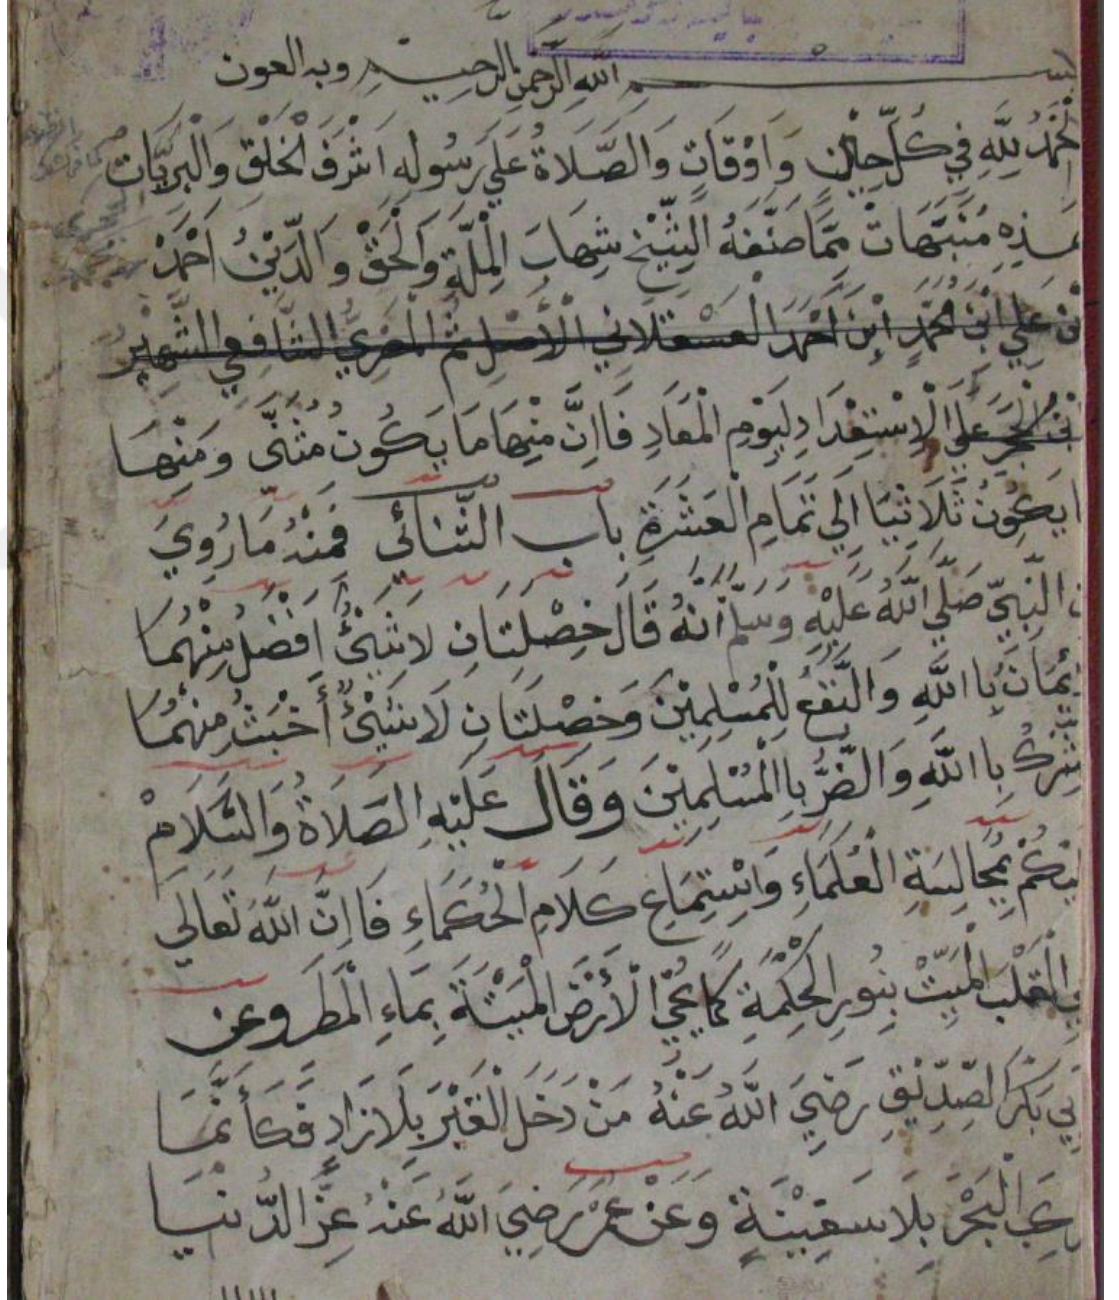 بسم الله الرحمن الرحيم وبه العون
الْحَمْدُ لِلَّهِ فِي كُلِّ حِيْنٍ وَاَوْقَاتٍ وَالصَّلَاةُ عَلَي رَسُولِهِ اَشْرَفِ الْخَلْقِ وَالْبَرِيَّاتْ
هَذِهِ مُنَبِّهَاتْ مِمَّا صَنَّفَهُ الشَّيْخ شِهَابَ الْمِلَّةِ وَالْحَقْ وَالدِّيْنْ اَحْمَدْ
بْنْ عَلِي ابْنَ مُحَمَّدٍ اِبْنَ اَحْمَدَ الْعَسْقَلَانِي الْاَصْلِ ثُمَّ الْمِصْرِيُّ الشَّافِعِي الشَّهِيْرْ
ابْنُ الْحَجَرِ عَلَي الْاِسْتِعْدَادِ لِيَوْمِ الْمَعَادِ فَااِنَّ مِنْهَا مَا يَكُونُ مُثَنَّى وَمِنْهَا
مَا يَكُونُ ثَلَاثِيَا اِلَي تَمَامِ الْعَشَرَةِ باب الثُّنَائِي فَمِنْهُ مَا رُوِيَ
عَنِ النَّبِيّ صَلَّي اللَّهُ عَلَيْهِ وَسَلَّمَ اَنَّهُ قَالَ خِصْلَتَانِ لَا شَيْئُ اَفْضَلُ مِنْهُمَا
الْاِيْمَانُ بِااللَّهِ وَالنَّفْعُ لِلْمُسْلِمِيْنَ وَخِصْلَتَانِ لَا شَيْئُ أَخْبَثُ مِنْهُمَا
الشِّرْكُ بِااللَّهِ وَالضُّرُّ بِاالْمُسْلِمِيْنَ وَقَالَ عَلَيْهِ الصَّلَاةُ وَالسَّلَامْ
عَلَيْكُمْ بِمُجَالِسَةِ الْعُلَمَاءِ وَاسْتِمَاعِ كَلَامِ الْحُكَمَاءِ فَااِنَّ اللَّهَ تَعَالَي
يُحْيِي الْقَلْبَ الْمَيِّتْ بِنُورِ الْحِكْمَةِ كَمَا يُحْيِ الْاَرْضَ الْمَيْتَةَ بِمَاءِ الْمَطَرِ وعن
اَبِي بَكْرِ الصِّدِّيْقِ رَضِيَ اللَّهُ عَنْهُ مَنْ دَخَلَ الْقَبْرَ بِلَا زَادٍ فَكَأَنَّمَا
رَكِبَ الْبَحْرَ بِلَا سَفِيْنَةٍ وَعَنْ عُمَرَ رَضِيَ اللَّهُ عَنْهُ عِزُّ الدُّنْيَا